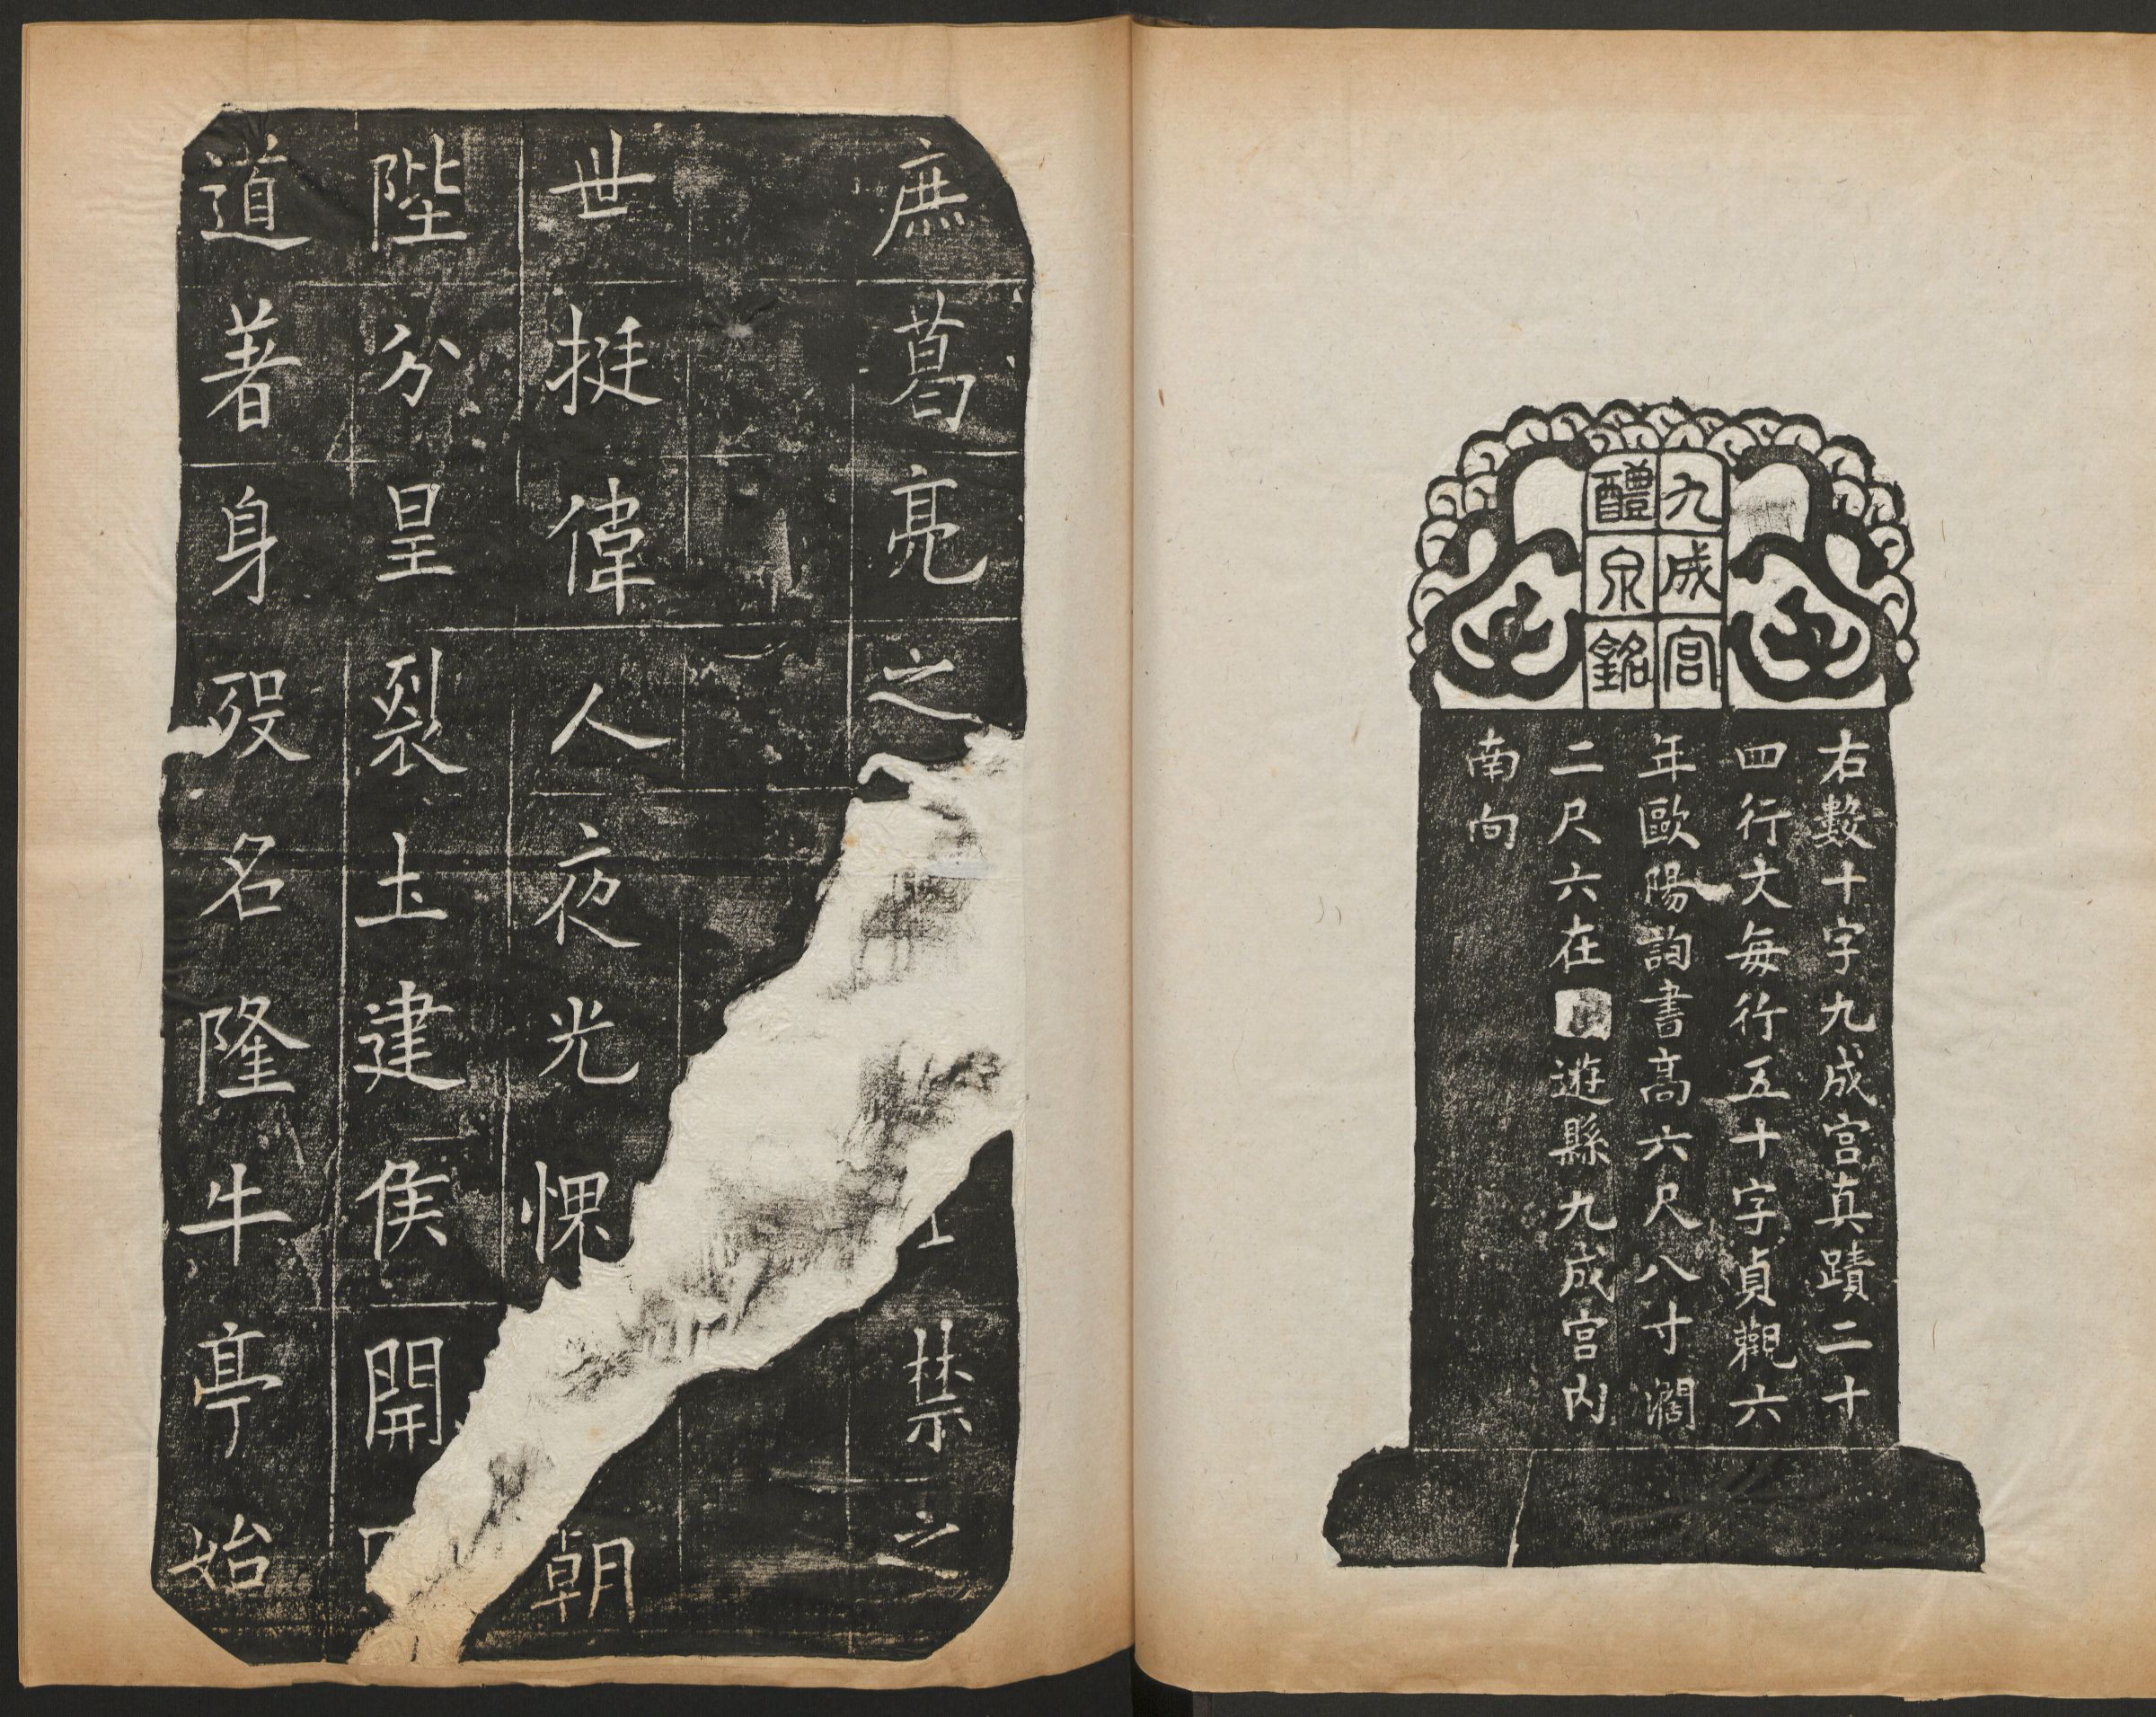 九成宮
醴泉銘
右數十字九成宮真蹟二十
四行大每行五十字貞觀六
年歐陽詢書高六尺八寸濶
二尺六在遊縣九成宮內
南向
庶葛亮之禁之
世挺偉人夜光惈朝
陛分皇裂土建侯開
道著身歿名隆牛亭始